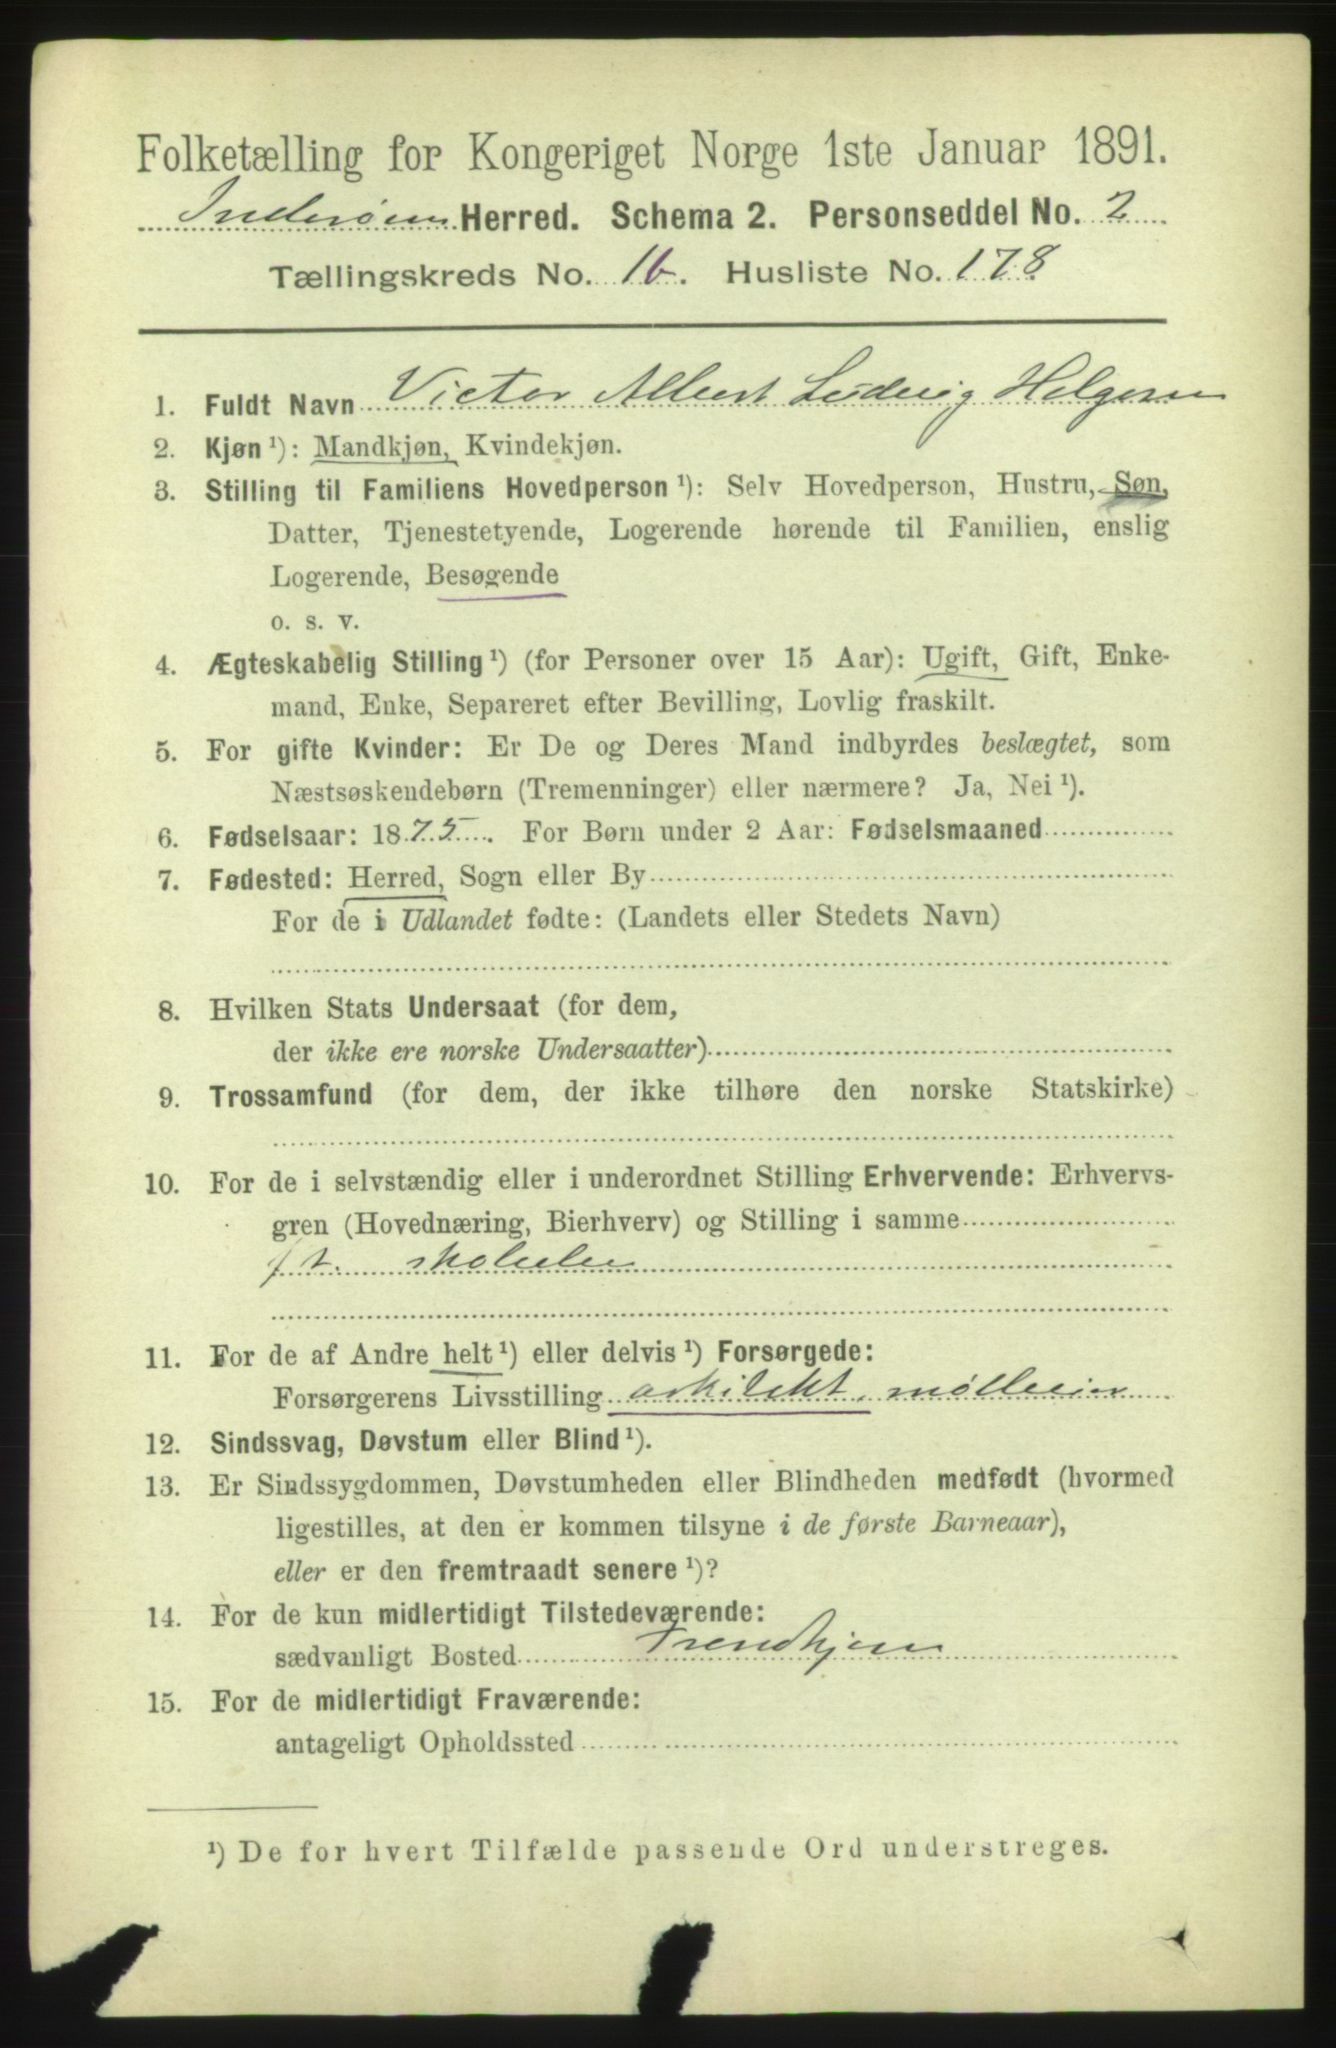 Folketælling for Kongeriget Norge 1ste Januar 1891.
Inderøen Herred. Schema 2. Personseddel No. 2
Tællingskreds No. 16. Husliste No. 178
1. Fuldt Navn Victor Albert Ludvig Helgesen
2. Kjøn ¹): Mandkjøn, Kvindekjøn.
3. Stilling til Familiens Hovedperson ¹): Selv Hovedperson, Hustru, Søn,
Datter, Tjenestetyende, Logerende hørende til Familien, enslig
Logerende, Besøgende
o. s. v.
4. Ægteskabelig Stilling ¹) (for Personer over 15 Aar): Ugift, Gift, Enke-
mand, Enke, Separeret efter Bevilling, Lovlig fraskilt.
5. For gifte Kvinder: Er De og Deres Mand indbyrdes beslægtet, som
Næstsøskendebørn (Tremenninger) eller nærmere? Ja, Nei ¹).
6. Fødselsaar: 1875. For Børn under 2 Aar: Fødselsmaaned
7. Fødested: Herred, Sogn eller By
For de i Udlandet fødte: (Landets eller Stedets Navn)
8. Hvilken Stats Undersaat (for dem,
der ikke ere norske Undersaatter)
9. Trossamfund (for dem, der ikke tilhøre den norske Statskirke)
10. For de i selvstændig eller i underordnet Stilling Erhvervende: Erhvervs-
gren (Hovednæring, Bierhverv) og Stilling i samme
f. t. skoleelev
11. For de af Andre helt ¹) eller delvis ¹) Forsørgede:
Forsørgerens Livsstilling arkitekt, mølleeier
12. Sindssvag, Døvstum eller Blind ¹).
13. Er Sindssygdommen, Døvstumheden eller Blindheden medfødt (hvormed
ligestilles, at den er kommen tilsyne i de første Barneaar),
eller er den fremtraadt senere ¹)?
14. For de kun midlertidigt Tilstedeværende:
sædvanligt Bosted Trondhjem
15. For de midlertidigt Fraværende:
antageligt Opholdssted
¹) De for hvert Tilfælde passende Ord understreges.